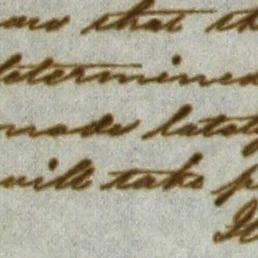 that th
determined
made lately
will take p